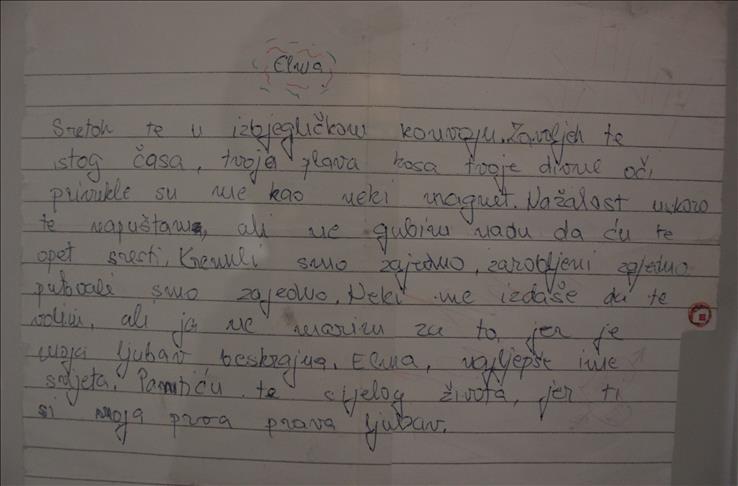 Elma
Sretoh te u izbjegličkom konvoju. Zavoljeh te
istog časa, tvoja plava kosa tvoje divne oči
privukle su me kao neki magnet. Nažalost uskoro
te napuštam, ali ne gubim nadu da ću te
opet sresti. Krenuli smo zajedno, zarobljeni zajedno
putovali smo zajedno. Neki me izdaše da te
volim, ali ja ne marim za to, jer je
moja ljubav beskrajna. Elma, najljepše ime
svijeta. Pamtiću te cijelog života, jer ti
si moja prva prava ljubav.